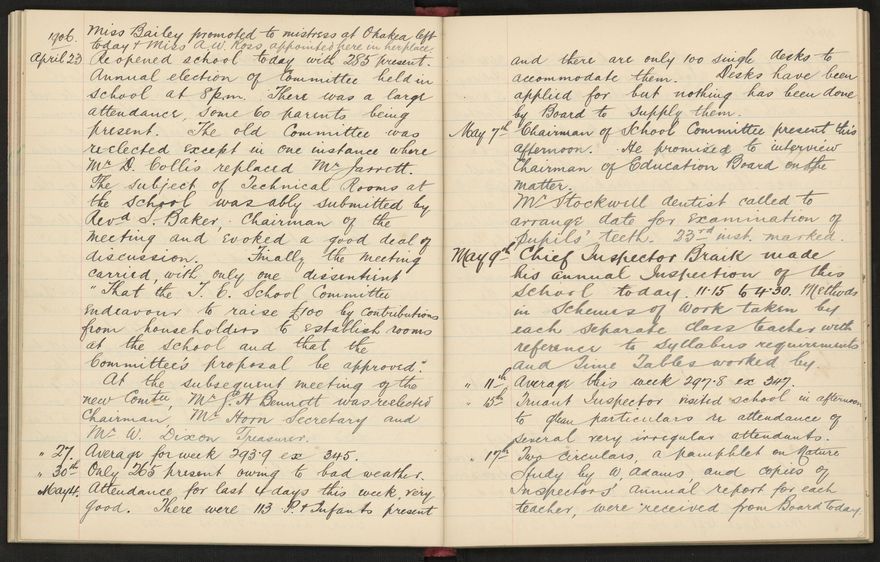 1906. Miss Bailey promoted to mistress at Ohakea left
today & Miss A. W. Ross, appointed here in her place.
April 23 Re opened school today with 285 present.
Annual election of Committee held in
School at 8 p.m. There was a large
attendance, some 60 parents being
present. The old Committee was
reelected except in one instance where
Mr D. Collis replaced Mr Jarrett.
The subject of Technical Rooms at
the school was ably submitted by
Revd I. Baker, Chairman of the
meeting and evoked a good deal of
discussion. Finally the meeting
carried, with only one dissentient
"That the T. E. School Committee
endeavour to raise £100 by contributions
from householders to establish rooms
at the school and that the
Committee's proposal be approved".
At the subsequent meeting of the
new Comtee, Mr J. H Bennett was reelected
Chairman, Mr Horn Secretary and
Mr W. Dixon Treasurer.
" 27. Average for week 293.9 ex 345.
" 30th Only 265 present owing to bad weather.
May 4. Attendance for last 4 days this week, very
good. There were 113 P. & Infants present
and there are only 100 single desks to
accommodate them. Desks have been
applied for but nothing has been done
by Board to supply them.
May 7th Chairman of School Committee present this
afternoon. He promised to interview
Chairman of Education Board on the
matter.
Mr Stockwell dentist called to
arrange date for examination of
pupils' teeth. 23rd inst. marked.
May 9th Chief Inspector Braik made
his annual Inspection of this
School today. 11.15 to 4.30. Methods
in Schemes of Work taken by
each separate class teacher with
reference to syllabus requirements
and Time Tables worked by.
" 11th Average this week 297.8 ex 347.
" 15th Truant Inspector visited school in afternoon
to glean particulars re attendance of
several very irregular attendants.
" 17th Two circulars, a pamphlet on Nature
Study by W. Adams, and copies of
Inspectors' annual report for each
teacher, were received from Board today.